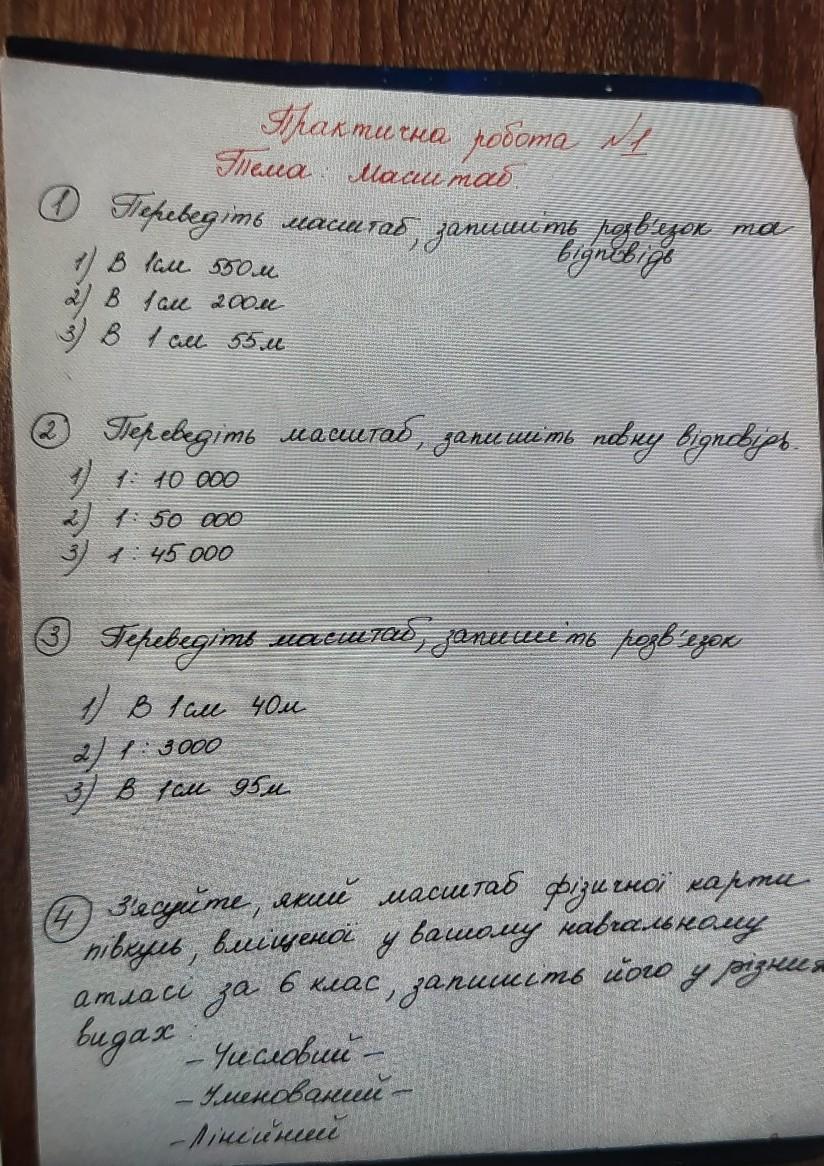 Практична робота №1
Тема: Масштаб.
① Переведіть масштаб, запишіть розв'язок та
відповідь
1) В 1см 550м
2) В 1см 200м
3) В 1см 55м
② Переведіть масштаб, запишіть повну відповідь.
1) 1: 10 000
2) 1: 50 000
3) 1: 45 000
③ Переведіть масштаб, запишіть розв'язок
1) В 1см 40м
2) 1:3000
3) В 1см 95м
④ З'ясуйте, який масштаб фізичної карти
півкуль, вміщеної у вашому навчальному
атласі за 6 клас, запишіть його у різних
видах:
- Числовий -
- Іменований -
- Лінійний